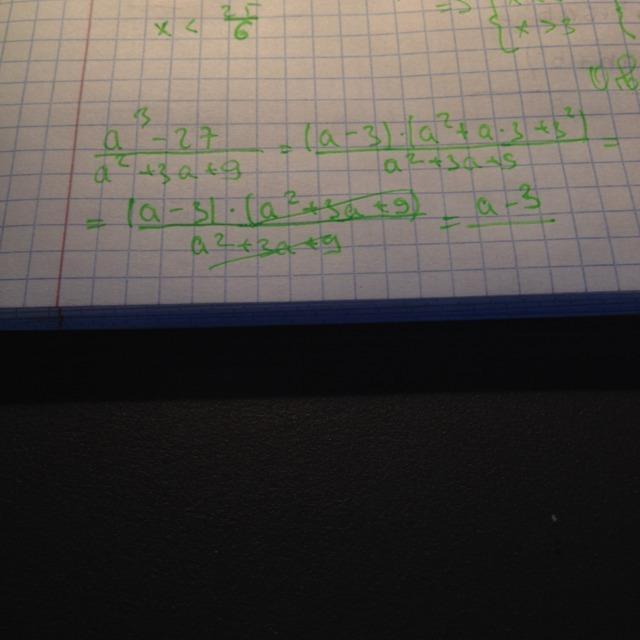 x < 25/6
{ x > 3
(a³ - 27)/(a² + 3a + 9) = ((a - 3) · (a² + a · 3 + 3²))/(a² + 3a + 9) =
= ((a - 3) · (a² + 3a + 9))/(a² + 3a + 9) = a - 3